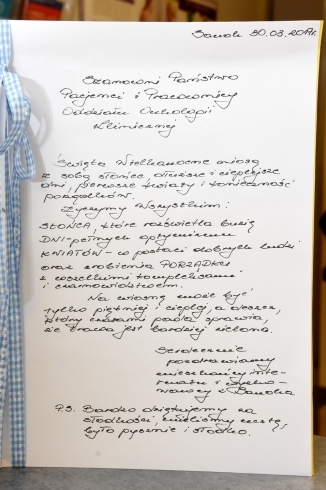 Sanok 30.03.2017r.
Szanowni Państwo
Pacjenci i Pracownicy
Oddziału Onkologii
Klinicznej
Święta Wielkanocne niosą
z sobą słońce, dłuższe i cieplejsze
dni, pierwsze kwiaty i konieczność
porządków.
Życzymy Wszystkim:
SŁOŃCA, które rozświetla buzię
DNI - pełnych optymizmu
KWIATÓW - w postaci dobrych ludzi
oraz zrobienia PORZĄDKU
z wszelkimi kompleksami
i czarnowidztwem.
Na wiosnę może być
tylko piękniej i cieplej, a deszcz,
który czasami pada sprawia,
że trawa jest bardziej zielona.
Serdecznie
pozdrawiamy
mieszkańcy inter-
natu i wycho-
wawcy z Sanoka
P.S. Bardzo dziękujemy za
słodkości, mieliśmy ucztę,
było pysznie i słodko.